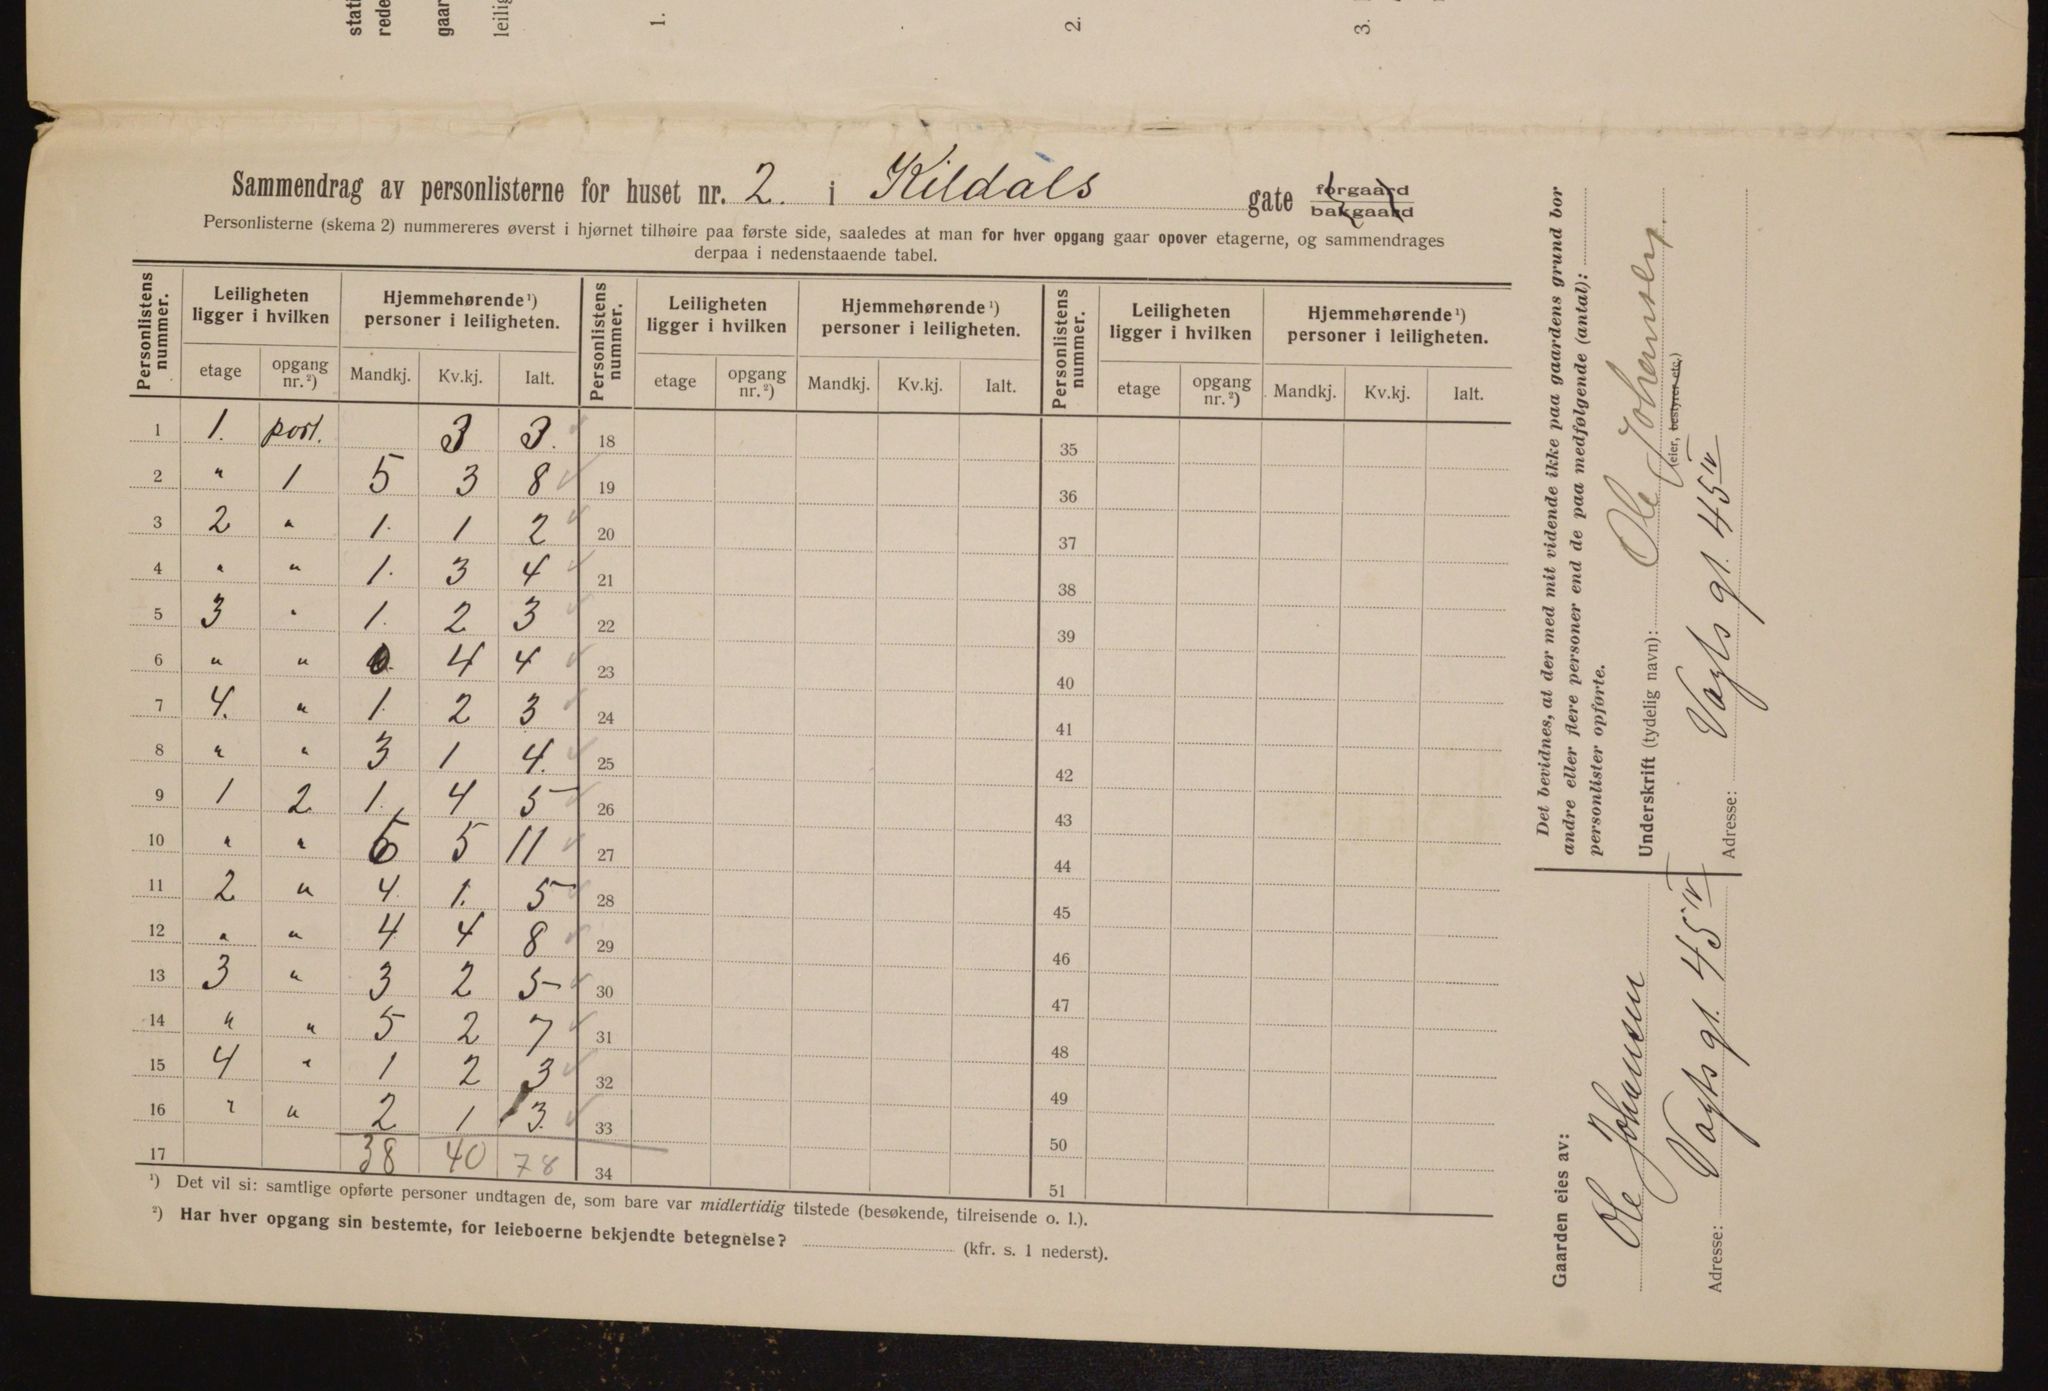 stati
rede
gaar
leilig
1.
2.
3.
Sammendrag av personlisterne for huset nr. 2. i Kildals gate forgaard bakgaard
Personlisterne (skema 2) nummereres øverst i hjørnet tilhøire paa første side, saaledes at man for hver opgang gaar opover etagerne, og sammendrages
derpaa i nedenstaaende tabel.
Personlistens nummer. Leiligheten ligger i hvilken Hjemmehørende¹) personer i leiligheten. Personlistens nummer. Leiligheten ligger i hvilken Hjemmehørende¹) personer i leiligheten. Personlistens nummer. Leiligheten ligger i hvilken Hjemmehørende¹) personer i leiligheten.
etage opgang nr.²) Mandkj. Kv.kj. Ialt. etage opgang nr.²) Mandkj. Kv.kj. Ialt. etage opgang nr.²) Mandkj. Kv.kj. Ialt.
1 1. port. 3 3. 18 35
2 " 1 5 3 8 19 36
3 2 " 1. 1 2 20 37
4 " " 1. 3 4 21 38
5 3 " 1. 2 3 22 39
6 " " 0. 4 4 23 40
7 4. " 1. 2 3 24 41
8 " " 3 1 4. 25 42
9 1 2 1. 4 5 26 43
10 " " 6 5 11 27 44
11 2 " 4. 1. 5 28 45
12 " " 4 4 8 29 46
13 3 " 3 2 5 30 47
14 " " 5 2 7 31 48
15 4 " 1 2 3 32 49
16 " " 2 1 3. 33 50
17 38 40 78 34 51
¹) Det vil si: samtlige opførte personer undtagen de, som bare var midlertidig tilstede (besøkende, tilreisende o. l.).
²) Har hver opgang sin bestemte, for leieboerne bekjendte betegnelse? (kfr. s. 1 nederst).
Det bevidnes, at der med mit vidende ikke paa gaardens grund bor
andre eller flere personer end de paa medfølgende (antal):
personlister opførte.
Underskrift (tydelig navn): Ole Johansen.
(eier, bestyrer etc.)
Adresse: Vogts gt. 45 IV
Gaarden eies av:
Ole Johansen
Adresse: Vogts gt. 45 IV